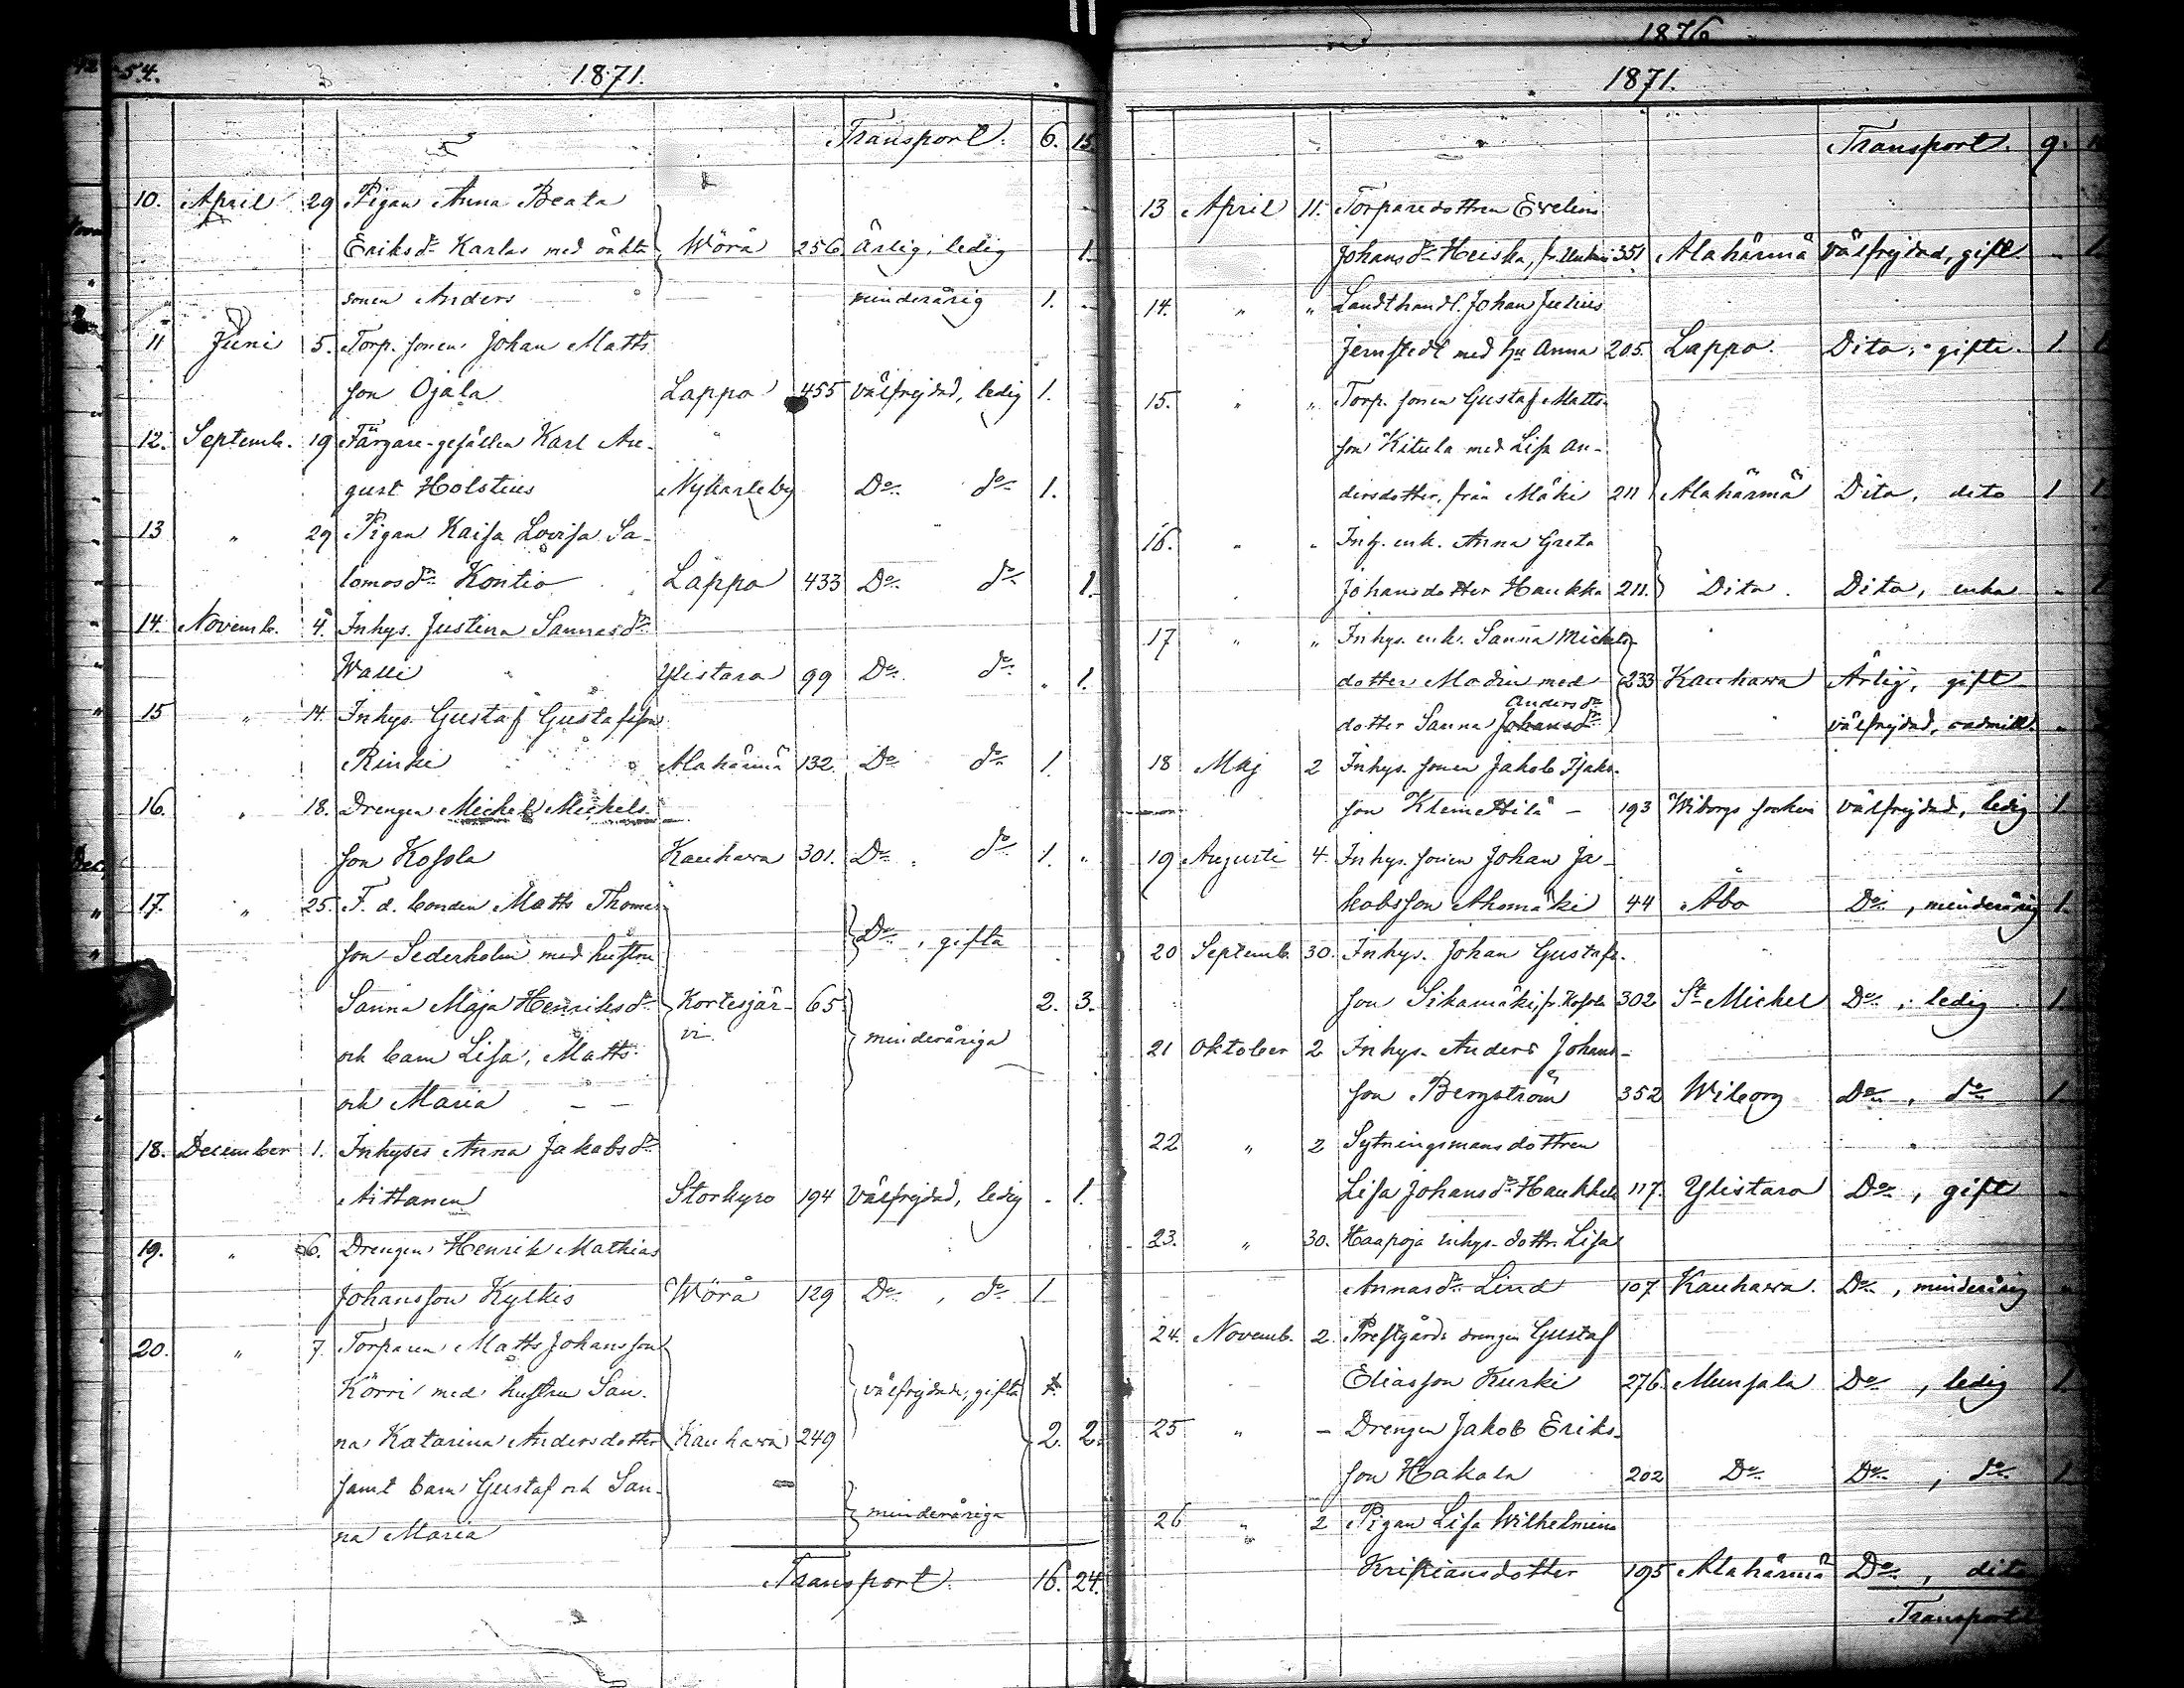 54.
1871.
Transport. 6. 15.
10. April 29 Pigan Anna Beata
Eriksdr Karlas med oäkta Wörå 256 Ärlig, ledig 1.
sonen Anders minderårig 1.
11 Juni 5. Torp. sonen Johan Matts
son Ojala Lappo 455 välfrejdad, ledig 1.
12. Septemb. 19 Färgare-gesällen Karl Au-
gust Holstius Nykarleby Do do 1.
13 " 29 Pigan Kaisa Lovisa Sa-
lomosdr Kontio Lappo 433 Do do 1.
14. Novemb. 4. Inhys. Justina Sannasdr
Walli Ylistaro 99 Do do " 1.
15 " 14. Inhys. Gustaf Gustafsson
Rinki Alahärmä 132. Do do 1.
16. " 18. Drengen Michel Michels
son Kossla Kauhava 301. Do do 1. "
17. " 25. F. d. bonden Matts Thomas
son Sederholm med hustru Do, gifta
Sanna Maja Henriksdr Kortesjär- 65 2. 3.
och barn Lisa, Matts vi minderåriga
och Maria - -
18. December 1. Inhyses Anna Jakobsdr
Aittanen Storkyro 194 Välfrejdad, ledig - 1.
19. " 6. Drengen Henrik Mathias
Johansson Kylkis Wörå 129 Do, do 1
20. " 7. Torparen Matts Johansson
Körri med hustru San- välfrejdade, gifta
na Katarina Andersdotter Kauhava 249 2. 2.
samt barn Gustaf och San-
na Maria minderåriga
Transport. 16. 24.
1876
1871.
Transport. 9.
13 April 11. Torparedottren Evelina
Johansdr Heiska, 351 Alahärmä Välfrejdad, gift. - 1.
14. " " Landthandl. Johan Julius
Jernstedt med hu Anna 205. Lappo. Dito, gifte. 1. 1
15. " " Torp. sonen Gustaf Matts-
son Kitula med Lisa An-
dersdotter, från Mäki 211 Alahärmä Dito, dito 1 1
16. " " Inh. enk. Anna Greta
Johansdotter Haukka 211. Dito. Dito, enka " 1
17 " " Inhys. enk. Sanna Michels
dotter Modin med 233 Kauhava Ärlig, gift
Andersdr
dotter Sanna Johansdr välfrejdad,
18 Maj 2 Inhys. sonen Jakob Isaks-
son Kleimettilä - 193 Wiborgs socken Välfrejdad, ledig 1.
19 Augusti 4. Inhys. sonen Johan Ja-
kobsson Ahomäki 44 Åbo Do, minderårig 1.
20 Septemb. 30. Inhys. Johan Gustafs-
son Sikamäki, fr. Kossola 302 St Michel Do, ledig 1
21 Oktober 2 Inhys. Anders Johans-
son Bergström 352 Wiborg Do, do 1
22 " 2 Sytningsmansdottren
Lisa Johansdr Haukkala 117. Ylistaro Do, gift
23. " 30. Haapoja inhys. dottr. Lisa
Annasdr Lind 107 Kauhava. Do, minderårig
24. Novemb. 2. Prestgårds drengen Gustaf
Eliasson Kurki 276. Munsala Do, ledig 1.
25 " - Drengen Jakob Eriks-
son Hakala 202 Do Do, do 1
26 " 2 Pigan Lisa Wilhelmina
Kristiansdotter 195 Alahärmä Do, dito
Transport